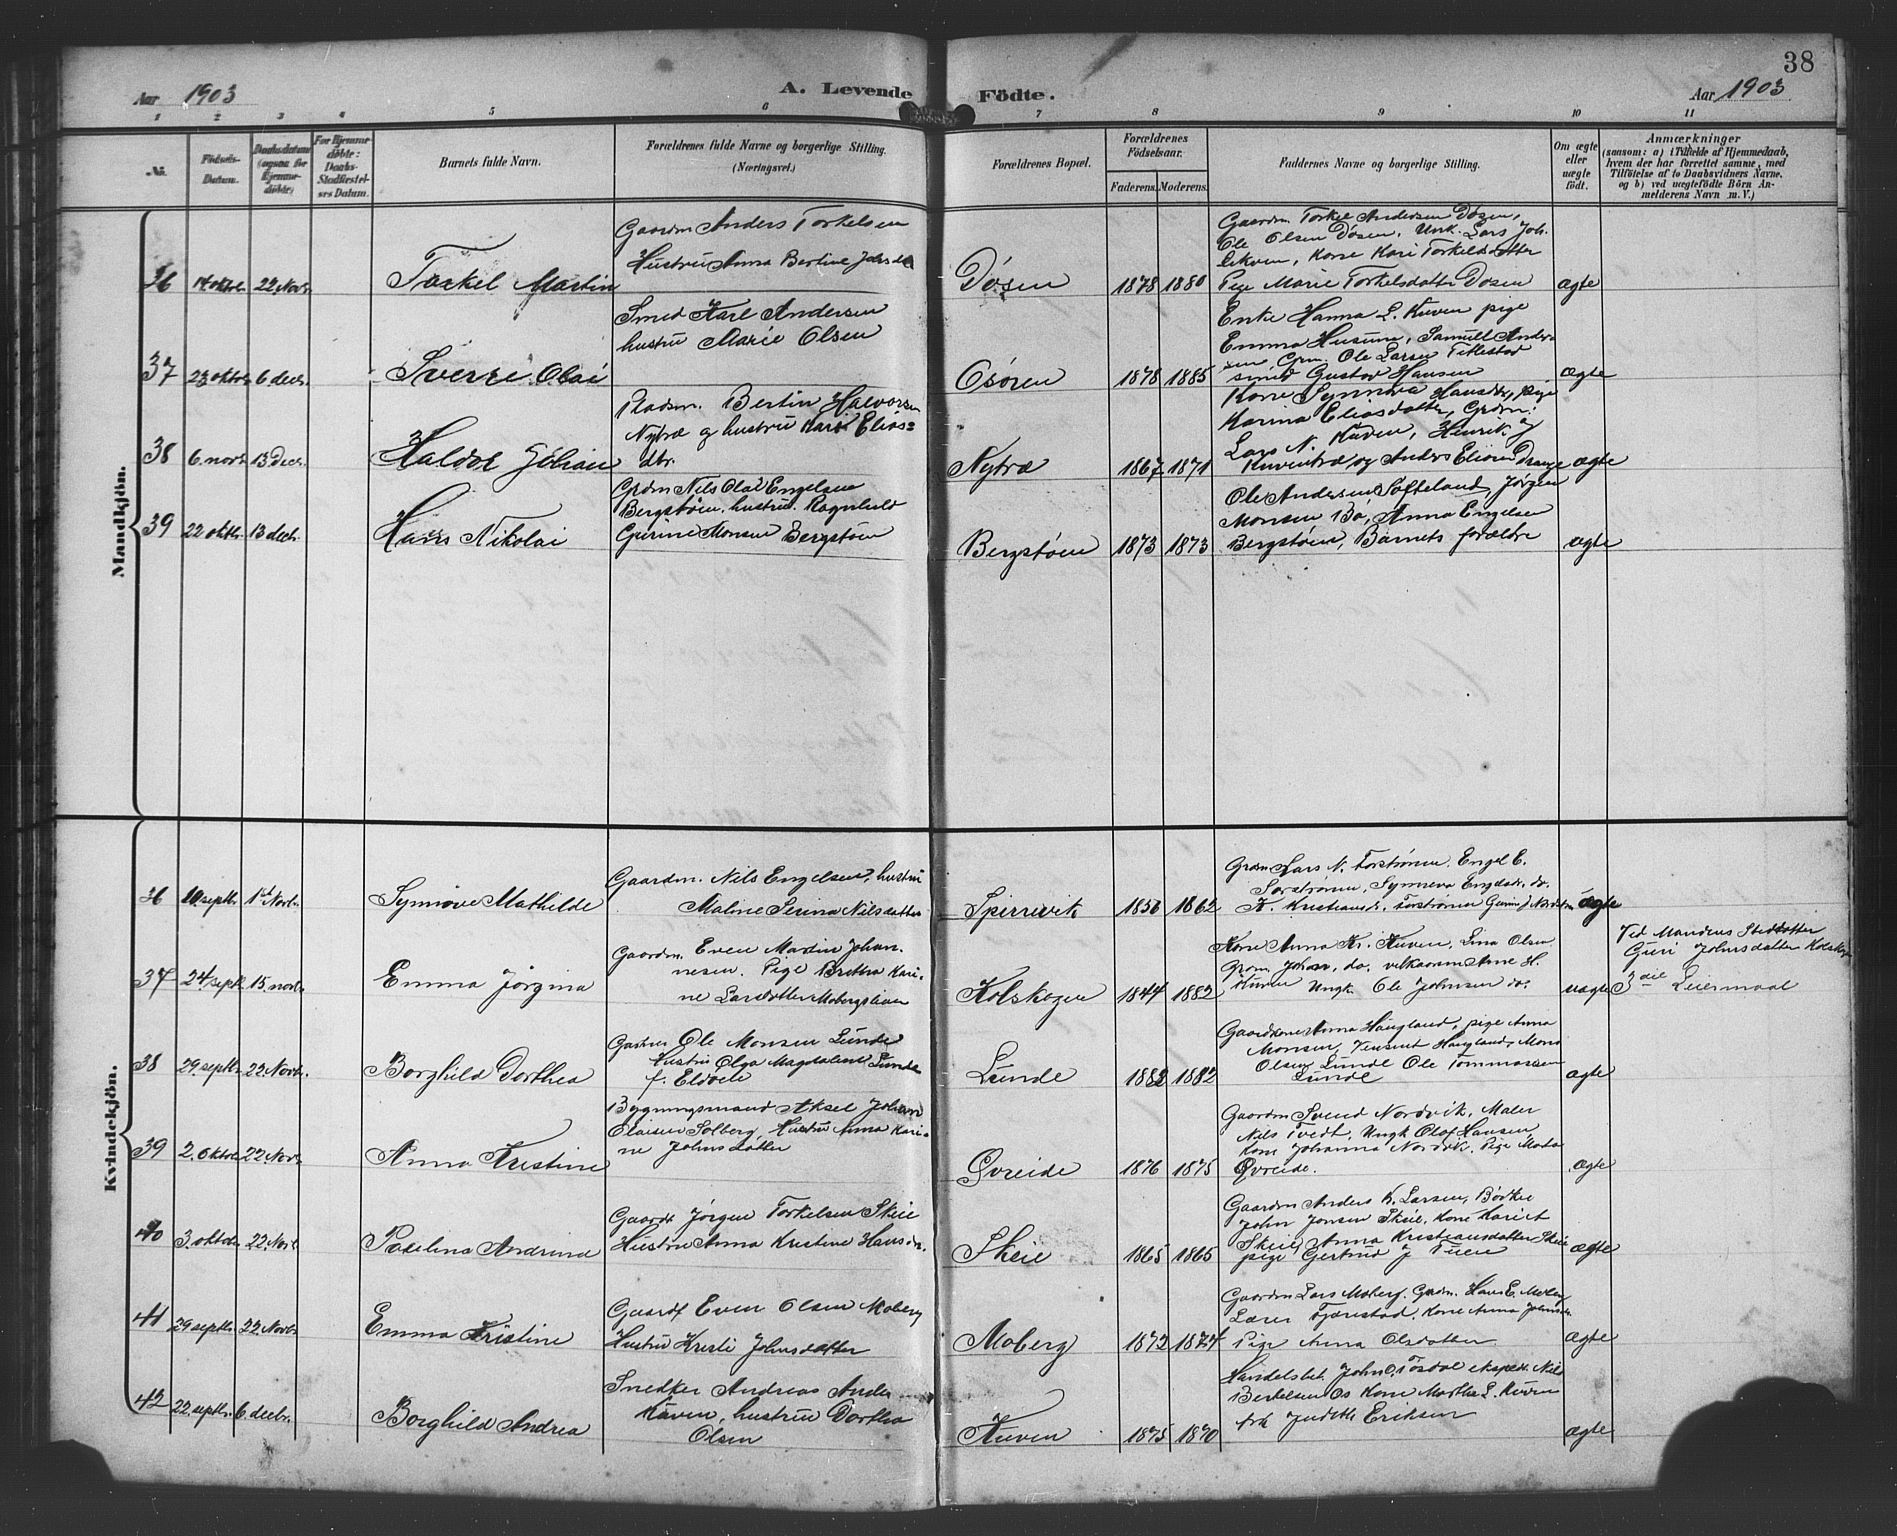 38
Aar 1903
A. Levende Födte.
Aar 1903
1 2 3 4 5 6 7 8 9 10 11
No.
Födsels-Datum.
Daabsdatum (ogsaa for Hjemmedöbte)
For Hjemmedöbte: Daabs-Stadfæstelses Datum.
Barnets fulde Navn.
Forældrenes fulde Navne og borgerlige Stilling.
(Næringsvei.)
Forældrenes Bopæl.
Forældrenes Födselsaar.
Faderens. Moderens.
Faddernes Navne og borgerlige Stilling.
Om ægte eller uægte födt.
Anmærkninger
(saasom: a) i Tilfælde af Hjemmedaab,
hvem der har forrettet samme, med
Tilföielse af to Daabsvidners Navne,
og b) ved uægtefödte Börn An-
melderens Navn m. V.)
Mandkjön.
36 14 oktbr. 22 Novbr. Torkel Martin
Gaardm Anders Torkelsen
Hustru Anna Bertine
Døsen 1878 1880
Gaardm. Torkel Andersen Døsen,
Ole Olsen Døsen, Unk. Lars Joh.
Lekven, Kone Kari Torkelsdatter
Pige Marie Torkelsdatter Døsen
ægte
37 23 oktbr. 6 decbr. Sverre Olai
Smed Karl Andersen
hustru Marie Olsen
Osøren 1878 1885
Enke Hanna L. Kuven pige
Emma Husum, Samuel Anders
sen Grm. Ole Larsen Tellestad
smed Gustav Hansen
ægte
38 6. novb. 13 Decr. Haldor Johan
Pladsm. Bertin Halvorsen
Nytræ og hustru Kari Elias=
dtr.
Nytræ 1867 1871
Kone Synneva Hansdtr, pige
Karina Eliasdatter, Grdm:
Lars N. Kuven, Henrik
Kuventræ og Anders Drange
ægte
39 22 oktbr. 13 decb. Hans Nikolai
Grdm Nils Olai Engelsen
Bergstøen, hustru. Ragnhild
Gurine Monsen Bergstøen
Bergstøen 1873 1873
Ole Andersen Søfteland, Jørgen
Monsen Bø, Anna Engelsen
Bergstøen, Barnets forældre
ægte
Kvindekjön.
36 10 septbr. 1st Novbr. Synnøve Mathilde
Gaardm. Nils Engelsen, hustru
Maline Serina Nilsdatter
Spirrevik 1856 1862
Grdm Lars N. Torstrønen. Engel E.
Synneva do.
ægte
37 24/septb 15 novbr. Emma Jørgina
Gaardm. Even Martin Johan-
nesen. Pige Britha Kari-
ne Larsdotter Mobergslien
Kolskogen 1844 1882
Kone Anna Kr. Kuven, Lina Olsen
Grdm. Johan, do.
Ungk. Ole Johnsen do.
uægte
Ved Mandens Steddatter
Guri Johnsdatter
3die Leiermaal
38 29. septbr. 22 Novbr. Borghild Dorthea
Ole Monsen Lunde
Hustru Olga Magdalene Lunde
f.
Lunde 1882 1882
Gaardkone Anna Haugland, pige Anna
Monsen, Vensent Haugland, Mons
Olsen Lunde Ole Tommassen
Lunde
ægte
39 2. Oktbr. 22 Novr. Anna Kristine
Bygningsmand Aksel Johan
Olaisen Solberg, Hustru Anna Kari-
ne Johnsdatter
Øvreide 1876 1875
Gaardm Svend Nordvik, Maler
Nils Tvedt, Ungk Olaf Hansen
Kone Johanna Nordvik. Pige Marta
Øvreide.
ægte
40 3. oktober 22. Novb. Paulina Andrina
Jørgen Torkelsen Skeie
Hustru Anna Kristine Hansdr.
Skeie 1865 1865
Gaardm Anders K. Larsen,
John Jonsen Skeie, Kone
Skeie, Anna Kristiansdatter Skeie
pige Gertrud J Tuen
ægte
41 29 septbr. 22 Novbr Emma Kristine
Even Olsen Moberg
Hustru Kristi Johnsdatter
Moberg 1872 1874
Gaardm Lars Moberg. Grdm. Hans E. Moberg
Lærer Kone Anna
Pige Anna Olsdatter
ægte
42 22. septbr. 6 decbr. Borghild Andrea
Snedker Andreas Anders
Kuven, hustru Dorthea
Olsen
Kuven 1875 1870
Handelsbet. John Tøsdal ekspedt. Nils
Bertelsen Os Kone Martha L. Kuven
frk Judithe Eriksen
ægte